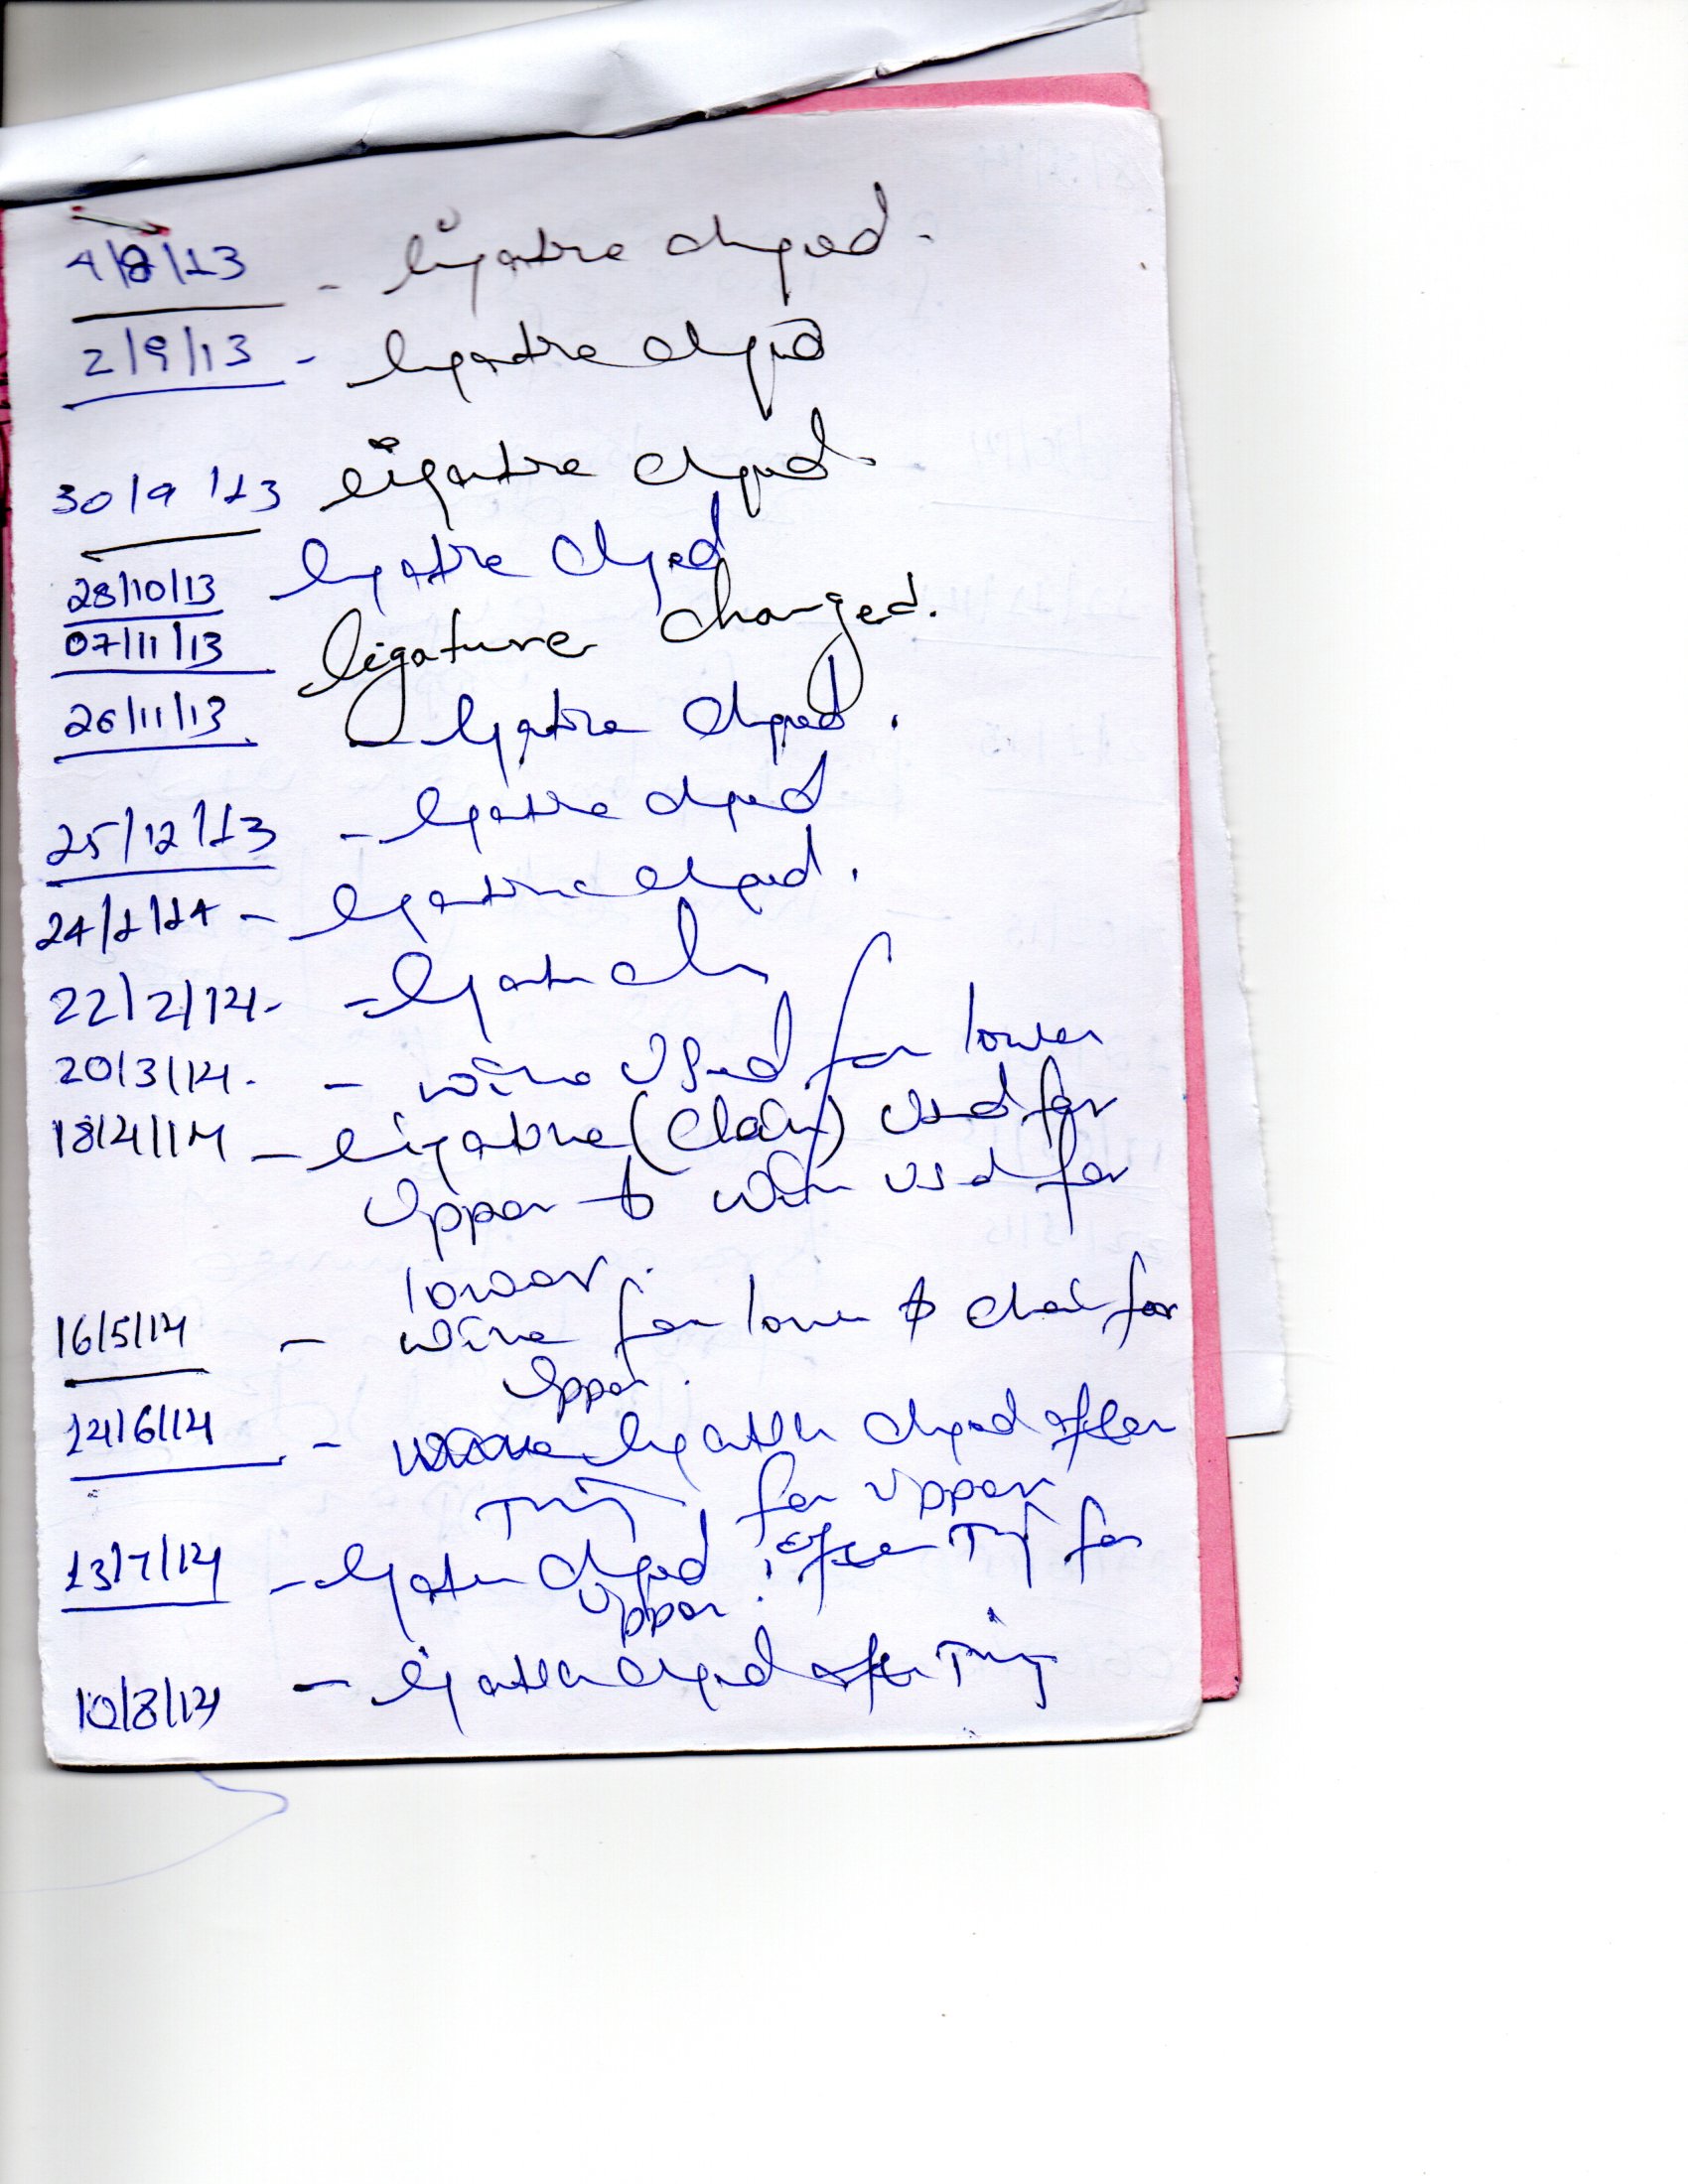 4/8/13 - ligature changed.
2/9/13 - ligature changed
30/9/13 ligature changed
28/10/13 ligature changed
07/11/13 ligature changed.
26/11/13 - ligature changed.
25/12/13 - ligature changed
24/1/14 - ligature changed.
22/2/14. - ligature ch
20/3/14. - wire used for lower
18/4/14 - ligature (Chain) used for
upper & wire used for
lower.
16/5/14 - wire for lower & chain for
upper.
14/6/14 - ligature changed after
for upper
13/7/14 - ligature changed after for
upper.
10/8/14 - ligature changed after